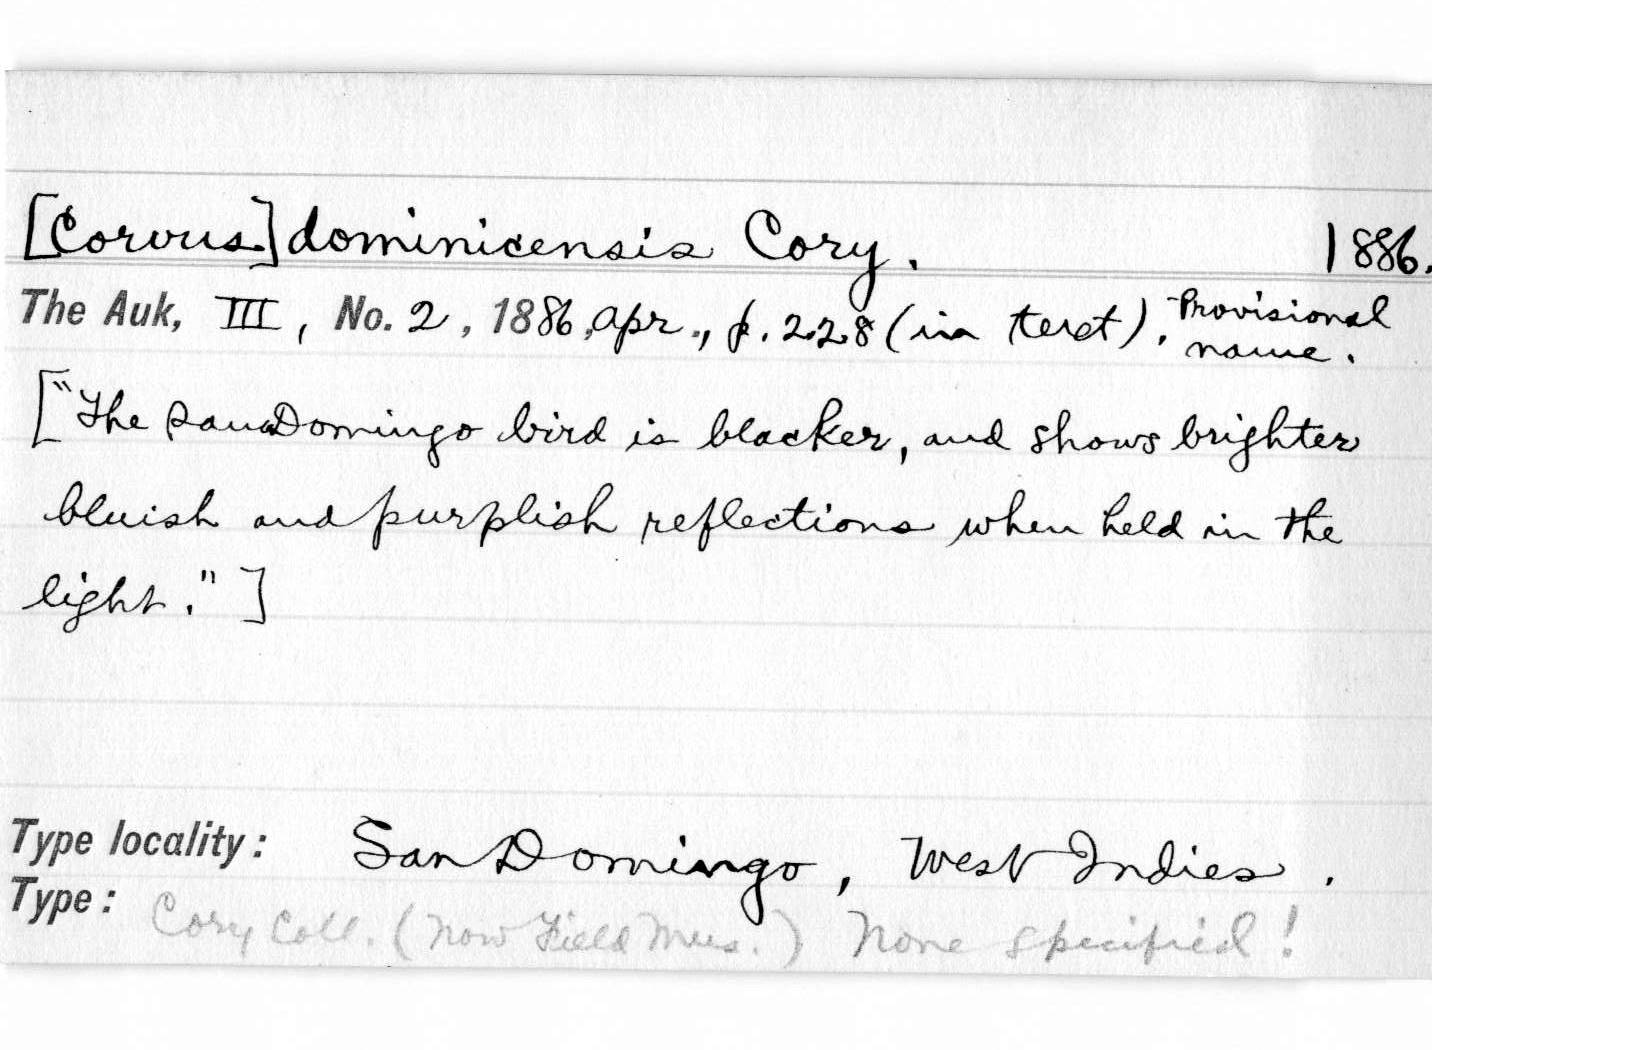 [Corvus] dominicensis Cory. 1886.
The Auk, III, No. 2, 1886, Apr., p. 228 (in text). Provisional name.
["The San Domingo bird is blacker, and shows brighter
bluish and purplish reflections when held in the
light."]
Type locality: San Domingo, West Indies.
Type: Cory Coll. (now Field Mus.) None specified!